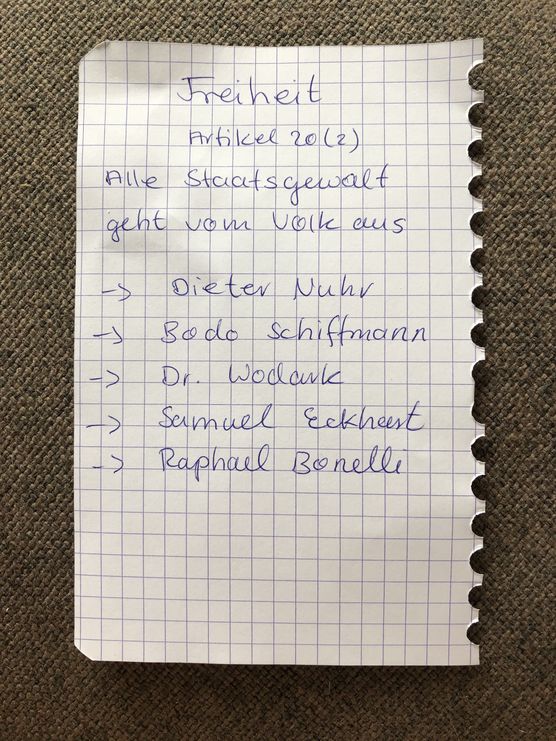 Freiheit
Artikel 20 (2)
Alle Staatsgewalt
geht vom Volk aus
-> Dieter Nuhr
-> Bodo Schiffmann
-> Dr. Wodark
-> Samuel Eckhert
-> Raphael Bonelli